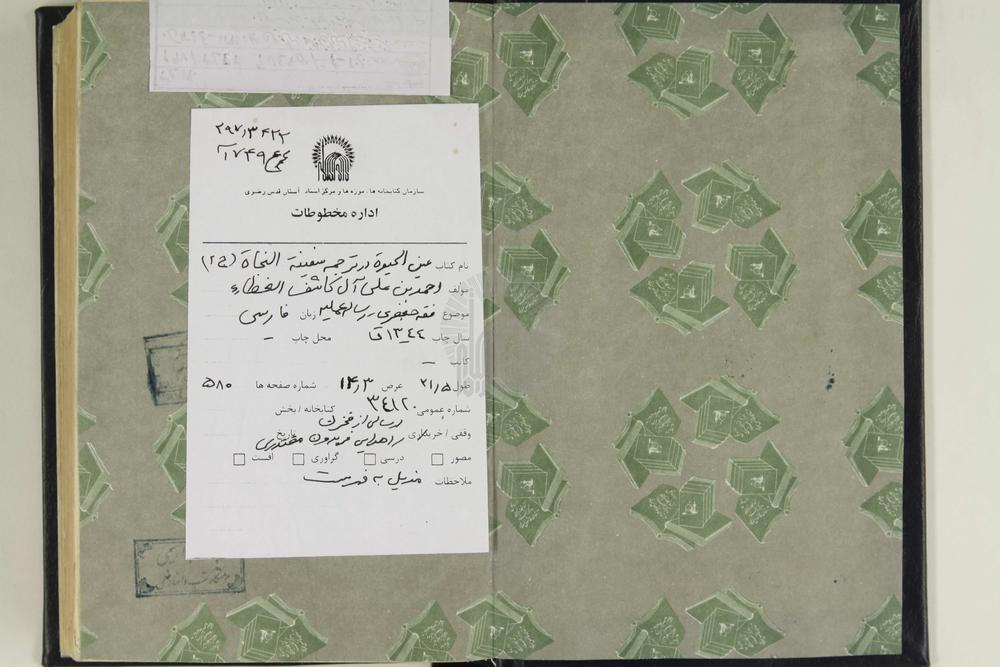 ۲۹۷/۳۴۲۲
سازمان کتابخانه ها، موزه ها و مرکز اسناد آستان قدس رضوی
اداره مخطوطات
نام کتاب عین الحیوة در ترجمه سفینة النجاة (ج۲)
مؤلف احمد بن علی آل کاشف الغطاء
موضوع فقه جعفری رساله عملیه زبان فارسی
سال چاپ ۱۳۴۴ق محل چاپ -
کاتب -
طول ۲۱/۵ عرض ۱۴/۳ شماره صفحه ها ۵۸۰
شماره عمومی ۳۴۱۲۰ کتابخانه / بخش
ارسالی از مخزن
وقفی / خریداری اهدایی فریدون مقتدری تاریخ
مصور درسی گراوری افست
ملاحظات مذیل به فهرست